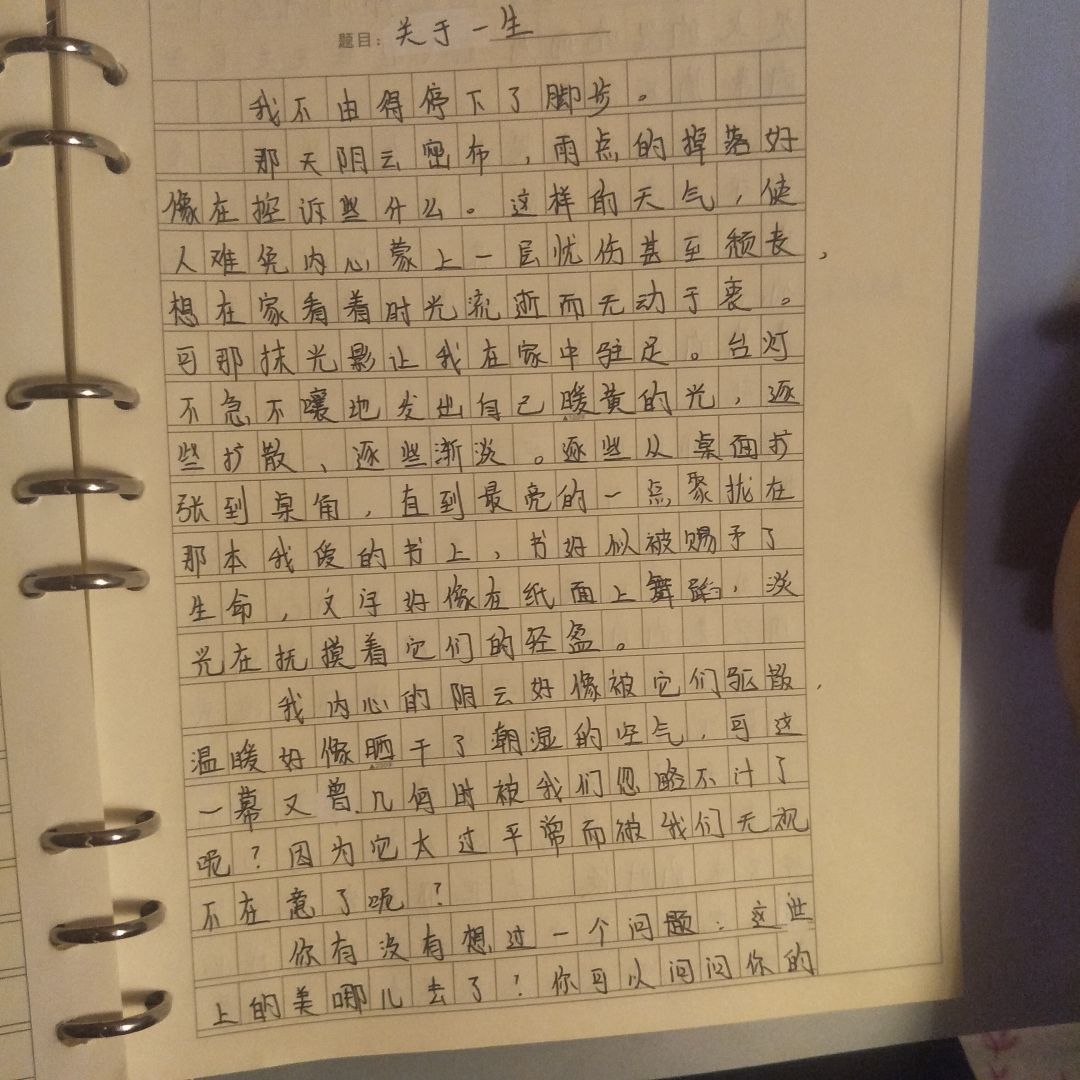 题目：关于一生
我不由得停下了脚步。
那天阴云密布，雨点的掉落好
像在控诉些什么。这样的天气，使
人难免内心蒙上一层忧伤甚至颓丧，
想在家看着时光流逝而无动于衷。
可那抹光影让我在家中驻足。台灯
不急不嚷地发出自己暖黄的光，逐
些扩散、逐些渐淡。逐些从桌面扩
张到桌角，直到最亮的一点聚拢在
那本我爱的书上，书好似被赐予了
生命，文字好像在纸面上舞蹈，淡
光在抚摸着它们的轻盈。
我内心的阴云好像被它们驱散，
温暖好像晒干了潮湿的空气，可这
一幕又曾几何时被我们忽略不计了
呢？因为它太过平常而被我们无视
不在意了呢？
你有没有想过一个问题：这世
上的美哪儿去了？你可以问问你的